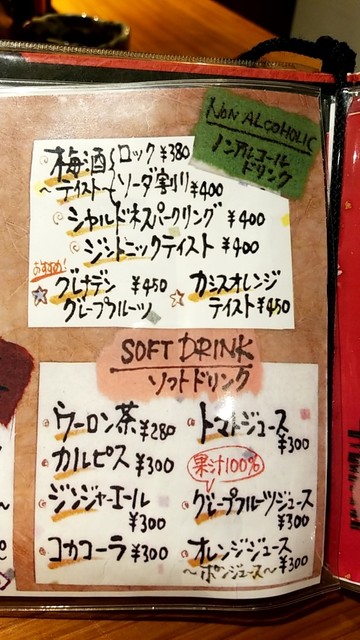 NON ALCOHOLIC
ノンアルコール
ドリンク
梅酒 ロック ¥380
〜テイスト〜 ソーダ割り ¥400
シャルドネスパークリング ¥400
ジントニックテイスト ¥400
おすすめ!
☆グレナデン ¥450
グレープフルーツ
☆カシスオレンジ
テイスト ¥450
SOFT DRINK
ソフトドリンク
ウーロン茶 ¥280
カルピス ¥300
ジンジャーエール
¥300
コカコーラ ¥300
トマトジュース
¥300
果汁100%
グレープフルーツジュース
¥300
オレンジジュース
〜ポンジュース〜 ¥300